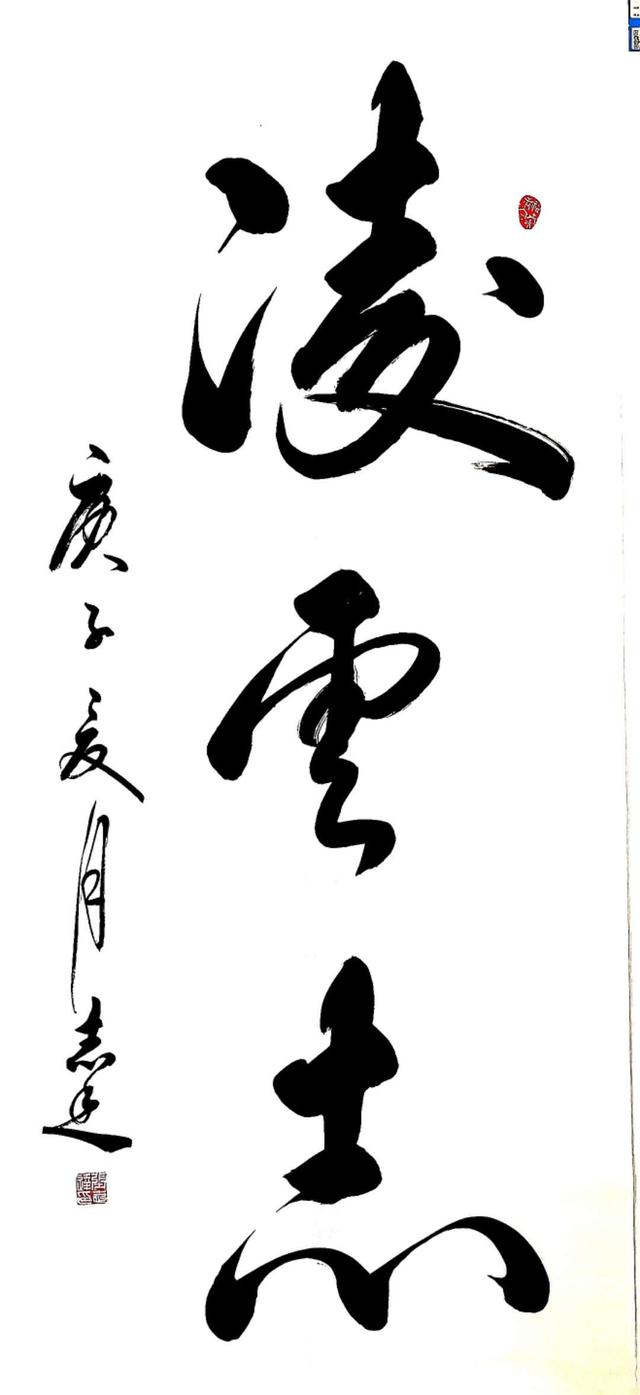 凌雲志
庚子夏月志